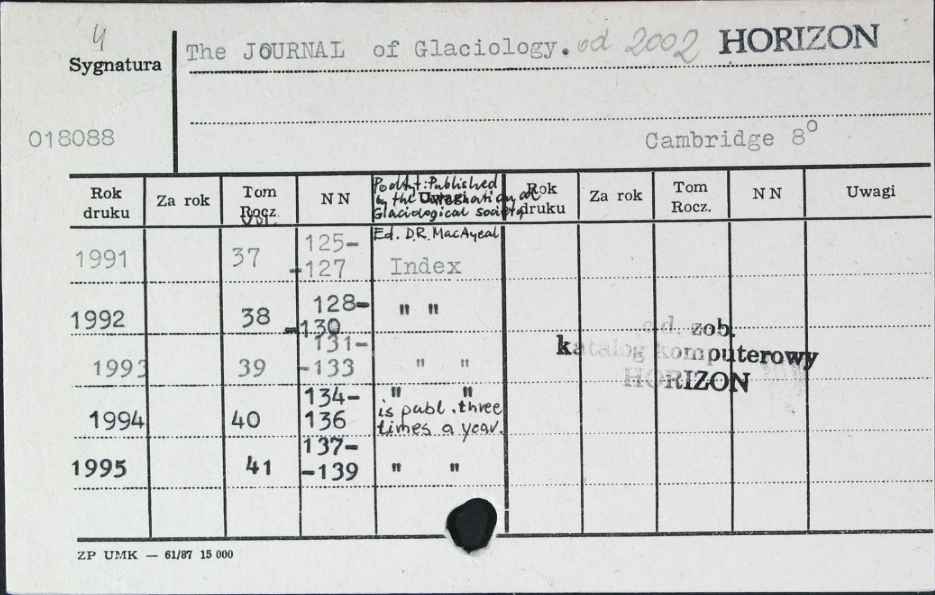 4
Sygnatura
The JOURNAL of Glaciology. od 2002 HORIZON
018088
Cambridge 8°
Rok druku Za rok Tom Rocz. Vol. N N Uwagi Rok druku Za rok Tom Rocz. N N Uwagi
Podtyt: Published
by the International
Glaciological society
Ed. D.R. MacAyeal
1991 37 125-
-127 Index
1992 38 128-
-130 " "
1993 39 131-
-133 " "
1994 40 134-
136 " "
is publ. three
times a year.
1995 41 137-
-139 " "
od. zob.
katalog komputerowy
HORIZON
ZP UMK — 61/87 15 000